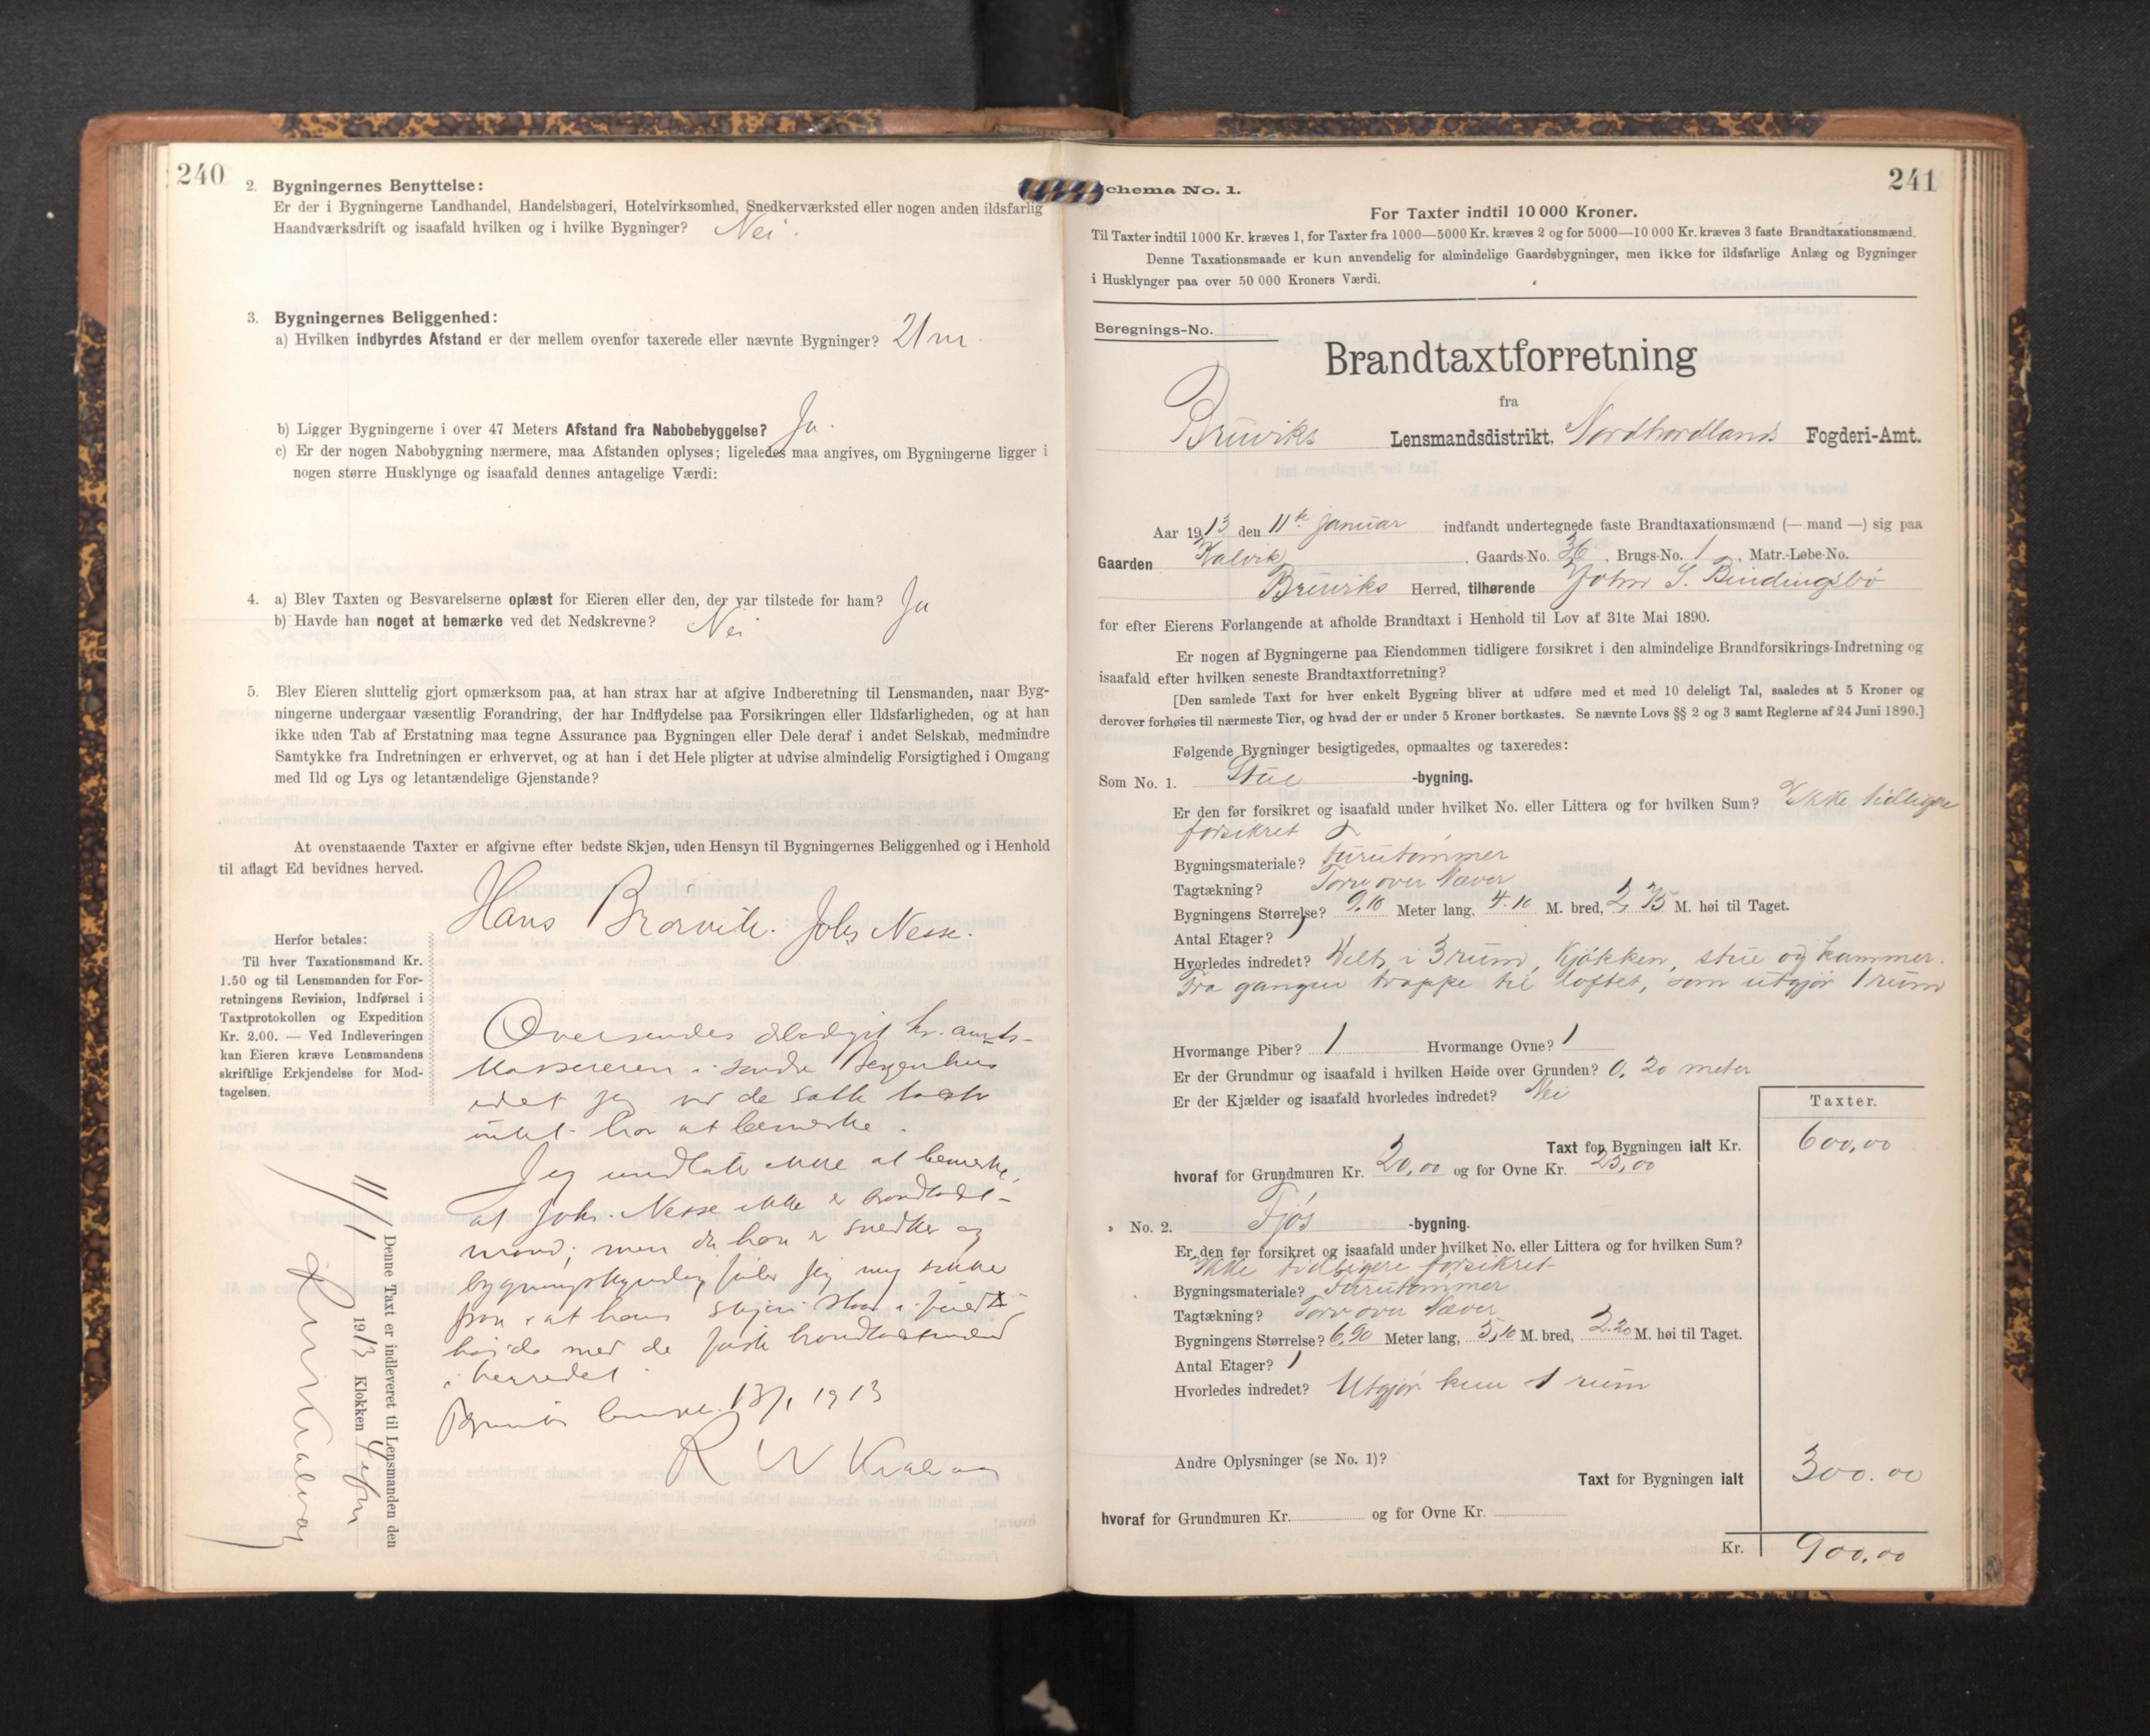 240
2. Bygningernes Benyttelse:
Er der i Bygningerne Landhandel, Handelsbageri, Hotelvirksomhed, Snedkerværksted eller nogen anden ildsfarlig
Haandværksdrift og isaafald hvilken og i hvilke Bygninger? Nei.
3. Bygningernes Beliggenhed:
a) Hvilken indbyrdes Afstand er der mellem ovenfor taxerede eller nævnte Bygninger? 21 m.
b) Ligger Bygningerne i over 47 Meters Afstand fra Nabobebyggelse? Ja.
c) Er der nogen Nabobygning nærmere, maa Afstanden oplyses; ligeledes maa angives, om Bygningerne ligger i
nogen større Husklynge og isaafald dennes antagelige Værdi:
4. a) Blev Taxten og Besvarelserne oplæst for Eieren eller den, der var tilstede for ham? Ja
b) Havde han noget at bemærke ved det Nedskrevne? Nei
5. Blev Eieren sluttelig gjort opmærksom paa, at han strax har at afgive Indberetning til Lensmanden, naar Byg-
ningerne undergaar væsentlig Forandring, der har Indflydelse paa Forsikringen eller Ildsfarligheden, og at han
ikke uden Tab af Erstatning maa tegne Assurance paa Bygningen eller Dele deraf i andet Selskab, medmindre
Samtykke fra Indretningen er erhvervet, og at han i det Hele pligter at udvise almindelig Forsigtighed i Omgang
med Ild og Lys og letantændelige Gjenstande?
At ovenstaaende Taxter er afgivne efter bedste Skjøn, uden Hensyn til Bygningernes Beliggenhed og i Henhold
til aflagt Ed bevidnes herved.
Hans Brørvik. Johs Nesse.
Herfor betales:
Til hver Taxationsmand Kr.
1.50 og til Lensmanden for For-
retningens Revision, Indførsel i
Taxtprotokollen og Expedition
Kr. 2.00. — Ved Indleveringen
kan Eieren kræve Lensmandens
skriftlige Erkjendelse for Mod-
tagelsen.
Oversendes hr. amts-
kassereren i søndre Bergenhus
idet jeg ved de satte takster
intet har at bemerke.
Jeg undlater ikke at bemerke,
at Johs. Nesse ikke er brandtakst-
mand; men da han er snedker og
bygningskyndig føler jeg mig sikker
paa at hans skjøn staar i
høide med de faste brandtakstmænd
i herredet.
13/1 1913
R N Kvalvaag
Denne Taxt er indleveret til Lensmanden den
11/1 1913 Klokken 4
Kvalvaag
241
Schema No. 1.
For Taxter indtil 10 000 Kroner.
Til Taxter indtil 1000 Kr. kræves 1, for Taxter fra 1000—5000 Kr. kræves 2 og for 5000—10 000 Kr. kræves 3 faste Brandtaxationsmænd.
Denne Taxationsmaade er kun anvendelig for almindelige Gaardsbygninger, men ikke for ildsfarlige Anlæg og Bygninger
i Husklynger paa over 50 000 Kroners Værdi.
Beregnings-No.
Brandtaxtforretning
fra
Bruviks Lensmandsdistrikt, Nordhordlands Fogderi-Amt.
Aar 1913 den 11te januar indfandt undertegnede faste Brandtaxationsmænd (— mand —) sig paa
Gaarden Kalvik, Gaards-No. 36, Brugs-No. 1, Matr.-Løbe-No.
Bruviks Herred, tilhørende John S. Bindingsbø
for efter Eierens Forlangende at afholde Brandtaxt i Henhold til Lov af 31te Mai 1890.
Er nogen af Bygningerne paa Eiendommen tidligere forsikret i den almindelige Brandforsikrings-Indretning og
isaafald efter hvilken seneste Brandtaxtforretning?
[Den samlede Taxt for hver enkelt Bygning bliver at udføre med et med 10 deleligt Tal, saaledes at 5 Kroner og
derover forhøies til nærmeste Tier, og hvad der er under 5 Kroner bortkastes. Se nævnte Lovs §§ 2 og 3 samt Reglerne af 24 Juni 1890.]
Følgende Bygninger besigtigedes, opmaaltes og taxeredes:
Som No. 1. Stue -bygning.
Er den før forsikret og isaafald under hvilket No. eller Littera og for hvilken Sum? Ikke tidligere
forsikret
Bygningsmateriale? furutømmer
Tagtækning? Torv over Næver
Bygningens Størrelse? 9,10 Meter lang, 4.10 M. bred, 2,75 M. høi til Taget.
Antal Etager? 1
Hvorledes indredet? Delt i 3 rum, Kjøkken, stue og kammer.
Fra gangen trappe til loftet, som utgjør 1 rum
Hvormange Piber? 1 Hvormange Ovne? 1
Er der Grundmur og isaafald i hvilken Høide over Grunden? 0,20 meter
Er der Kjælder og isaafald hvorledes indredet? Nei
Taxter.
Taxt for Bygningen ialt Kr. 600,00
hvoraf for Grundmuren Kr. 20,00 og for Ovne Kr. 25,00
» No. 2. Fjøs -bygning.
Er den før forsikret og isaafald under hvilket No. eller Littera og for hvilken Sum?
Ikke tidligere forsikret
Bygningsmateriale? Furutømmer
Tagtækning? Torv over Næver
Bygningens Størrelse? 6,90 Meter lang, 5,10 M. bred, 2.20 M. høi til Taget.
Antal Etager? 1
Hvorledes indredet? Utgjør kun 1 rum
Andre Oplysninger (se No. 1)?
Taxt for Bygningen ialt 300.00
hvoraf for Grundmuren Kr. og for Ovne Kr.
Kr. 900,00